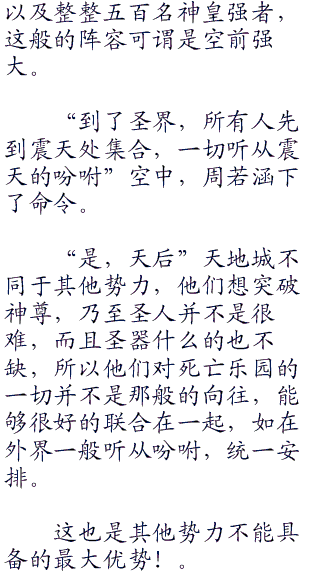 以及整整五百名神皇强者，
这般的阵容可谓是空前强
大。
“到了圣界，所有人先
到震天处集合，一切听从震
天的吩咐”空中，周若涵下
了命令。
“是，天后”天地城不
同于其他势力，他们想突破
神尊，乃至圣人并不是很
难，而且圣器什么的也不
缺，所以他们对死亡乐园的
一切并不是那般的向往，能
够很好的联合在一起，如在
外界一般听从吩咐，统一安
排。
这也是其他势力不能具
备的最大优势！。